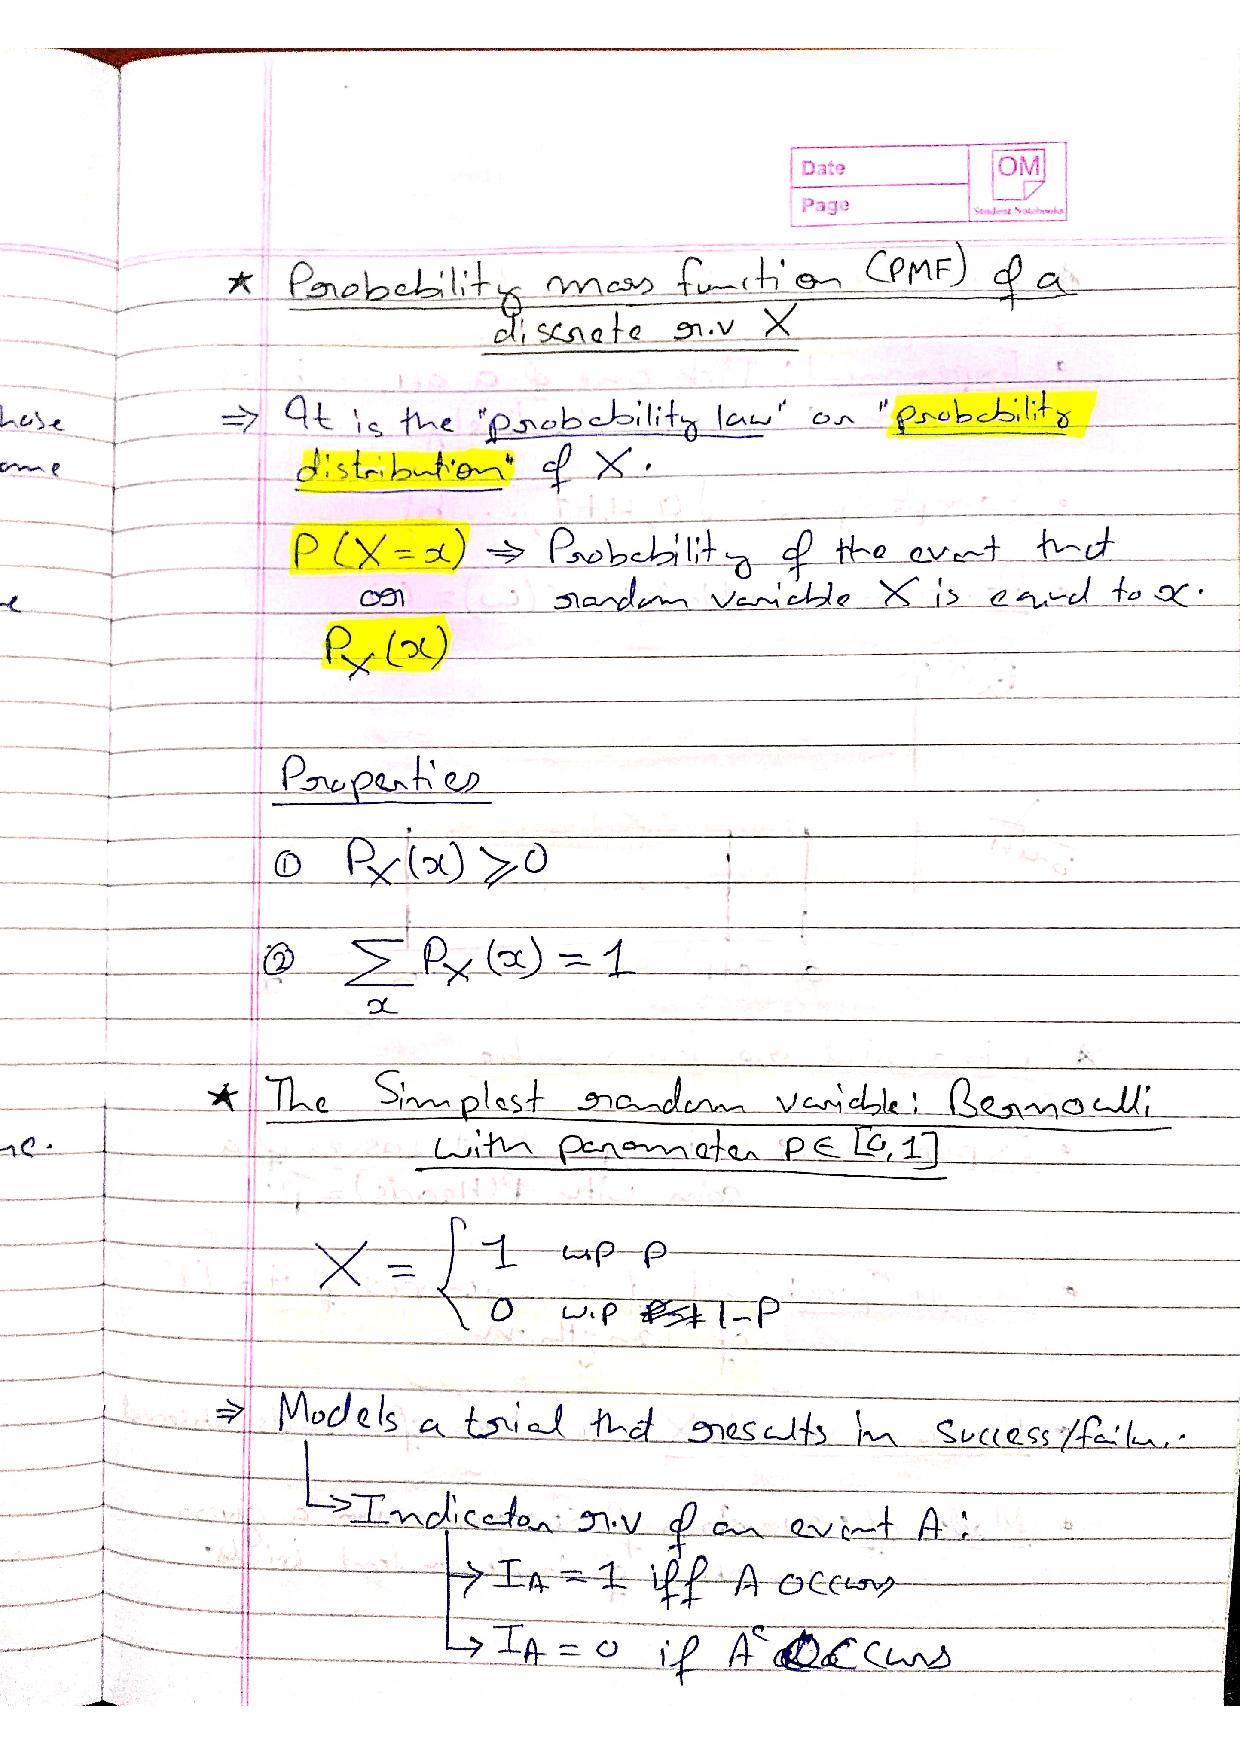 Date
OM
Page
Student Notebooks
★ Probability mass function (PMF) of a
discrete r.v X
hose
⇒ It is the "probability law" or "probability
ome
distribution" of X.
P(X=x) ⇒ Probability of the event that
or random variable X is equal to x.
P_X(x)
Properties
① P_X(x) ⩾ 0
② ∑ P_X(x) = 1
x
★ The Simplest random variable: Bernoulli
with parameter p ∈ [0,1]
ne.
X = { 1 w.p p
0 w.p 1-P
⇒ Models a trial that results in success/failu..
↳ Indicator r.v of an event A:
→ I_A = 1 iff A occurs
↳ I_A = 0 if A^c occurs